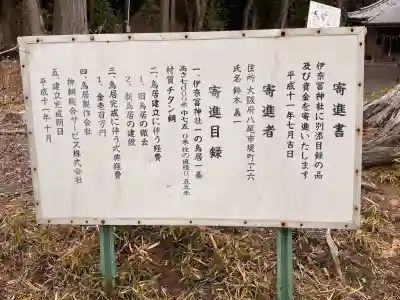 寄進書
伊奈冨神社に別添目録の品
及び資金を寄進いたします
平成十一年七月吉日
寄進者
住所 大阪府八尾市堤町一ノ六
氏名 鈴木義一
寄進目録
一、伊奈冨神社一の鳥居一基
高さ七、〇〇〇米中七、五〇米柱の直径〇、五五米
材質チタン鋼
二、鳥居建立に伴う経費
1、旧鳥居の撤去
2、新鳥居の建設
三、鳥居完成に伴う式典経費
一、金壱百万円
四、鳥居製作会社
株式会社
五、建立完成期日
平成十一年十月